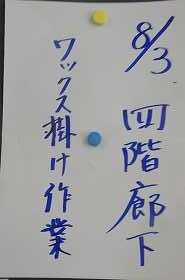 8/3 四階廊下
ワックス掛け作業